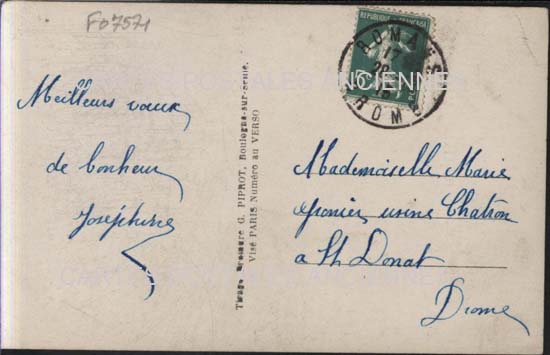 FD7571
REPUBLIQUE FRANÇAISE
ROMANS
17
DROME
CARTES POSTALES ANCIENNES
Meilleurs vœux
de bonheur
Joséphine
Tirage G. PIPROT, Boulogne-sur-Seine.
Visé PARIS Numéro au VERSO
Mademoiselle Marie
usine Chatron
a St Donat
Drome